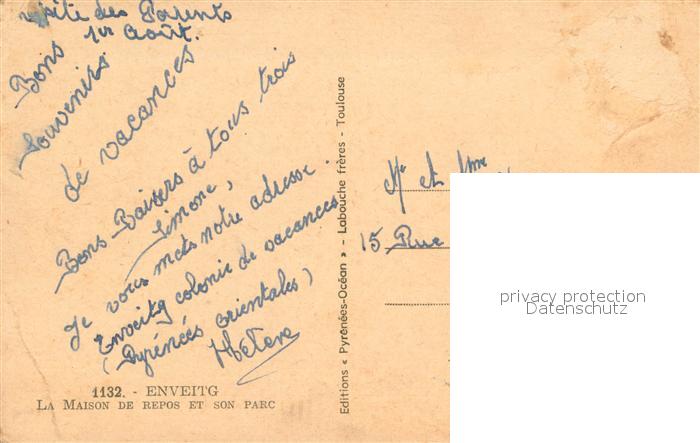 visite des Parents
1er Août.
Bons
Souvenirs
de vacances
Bons Baisers à tous trois
Simone,
Je vous mets notre adresse.
Enveitg colonie de vacances
(Pyrénées orientales)
Hélène
1132. - ENVEITG
LA MAISON DE REPOS ET SON PARC
Editions « Pyrénées-Océan » - Labouche frères - Toulouse
Mr et Mme
15 Rue
privacy protection
Datenschutz